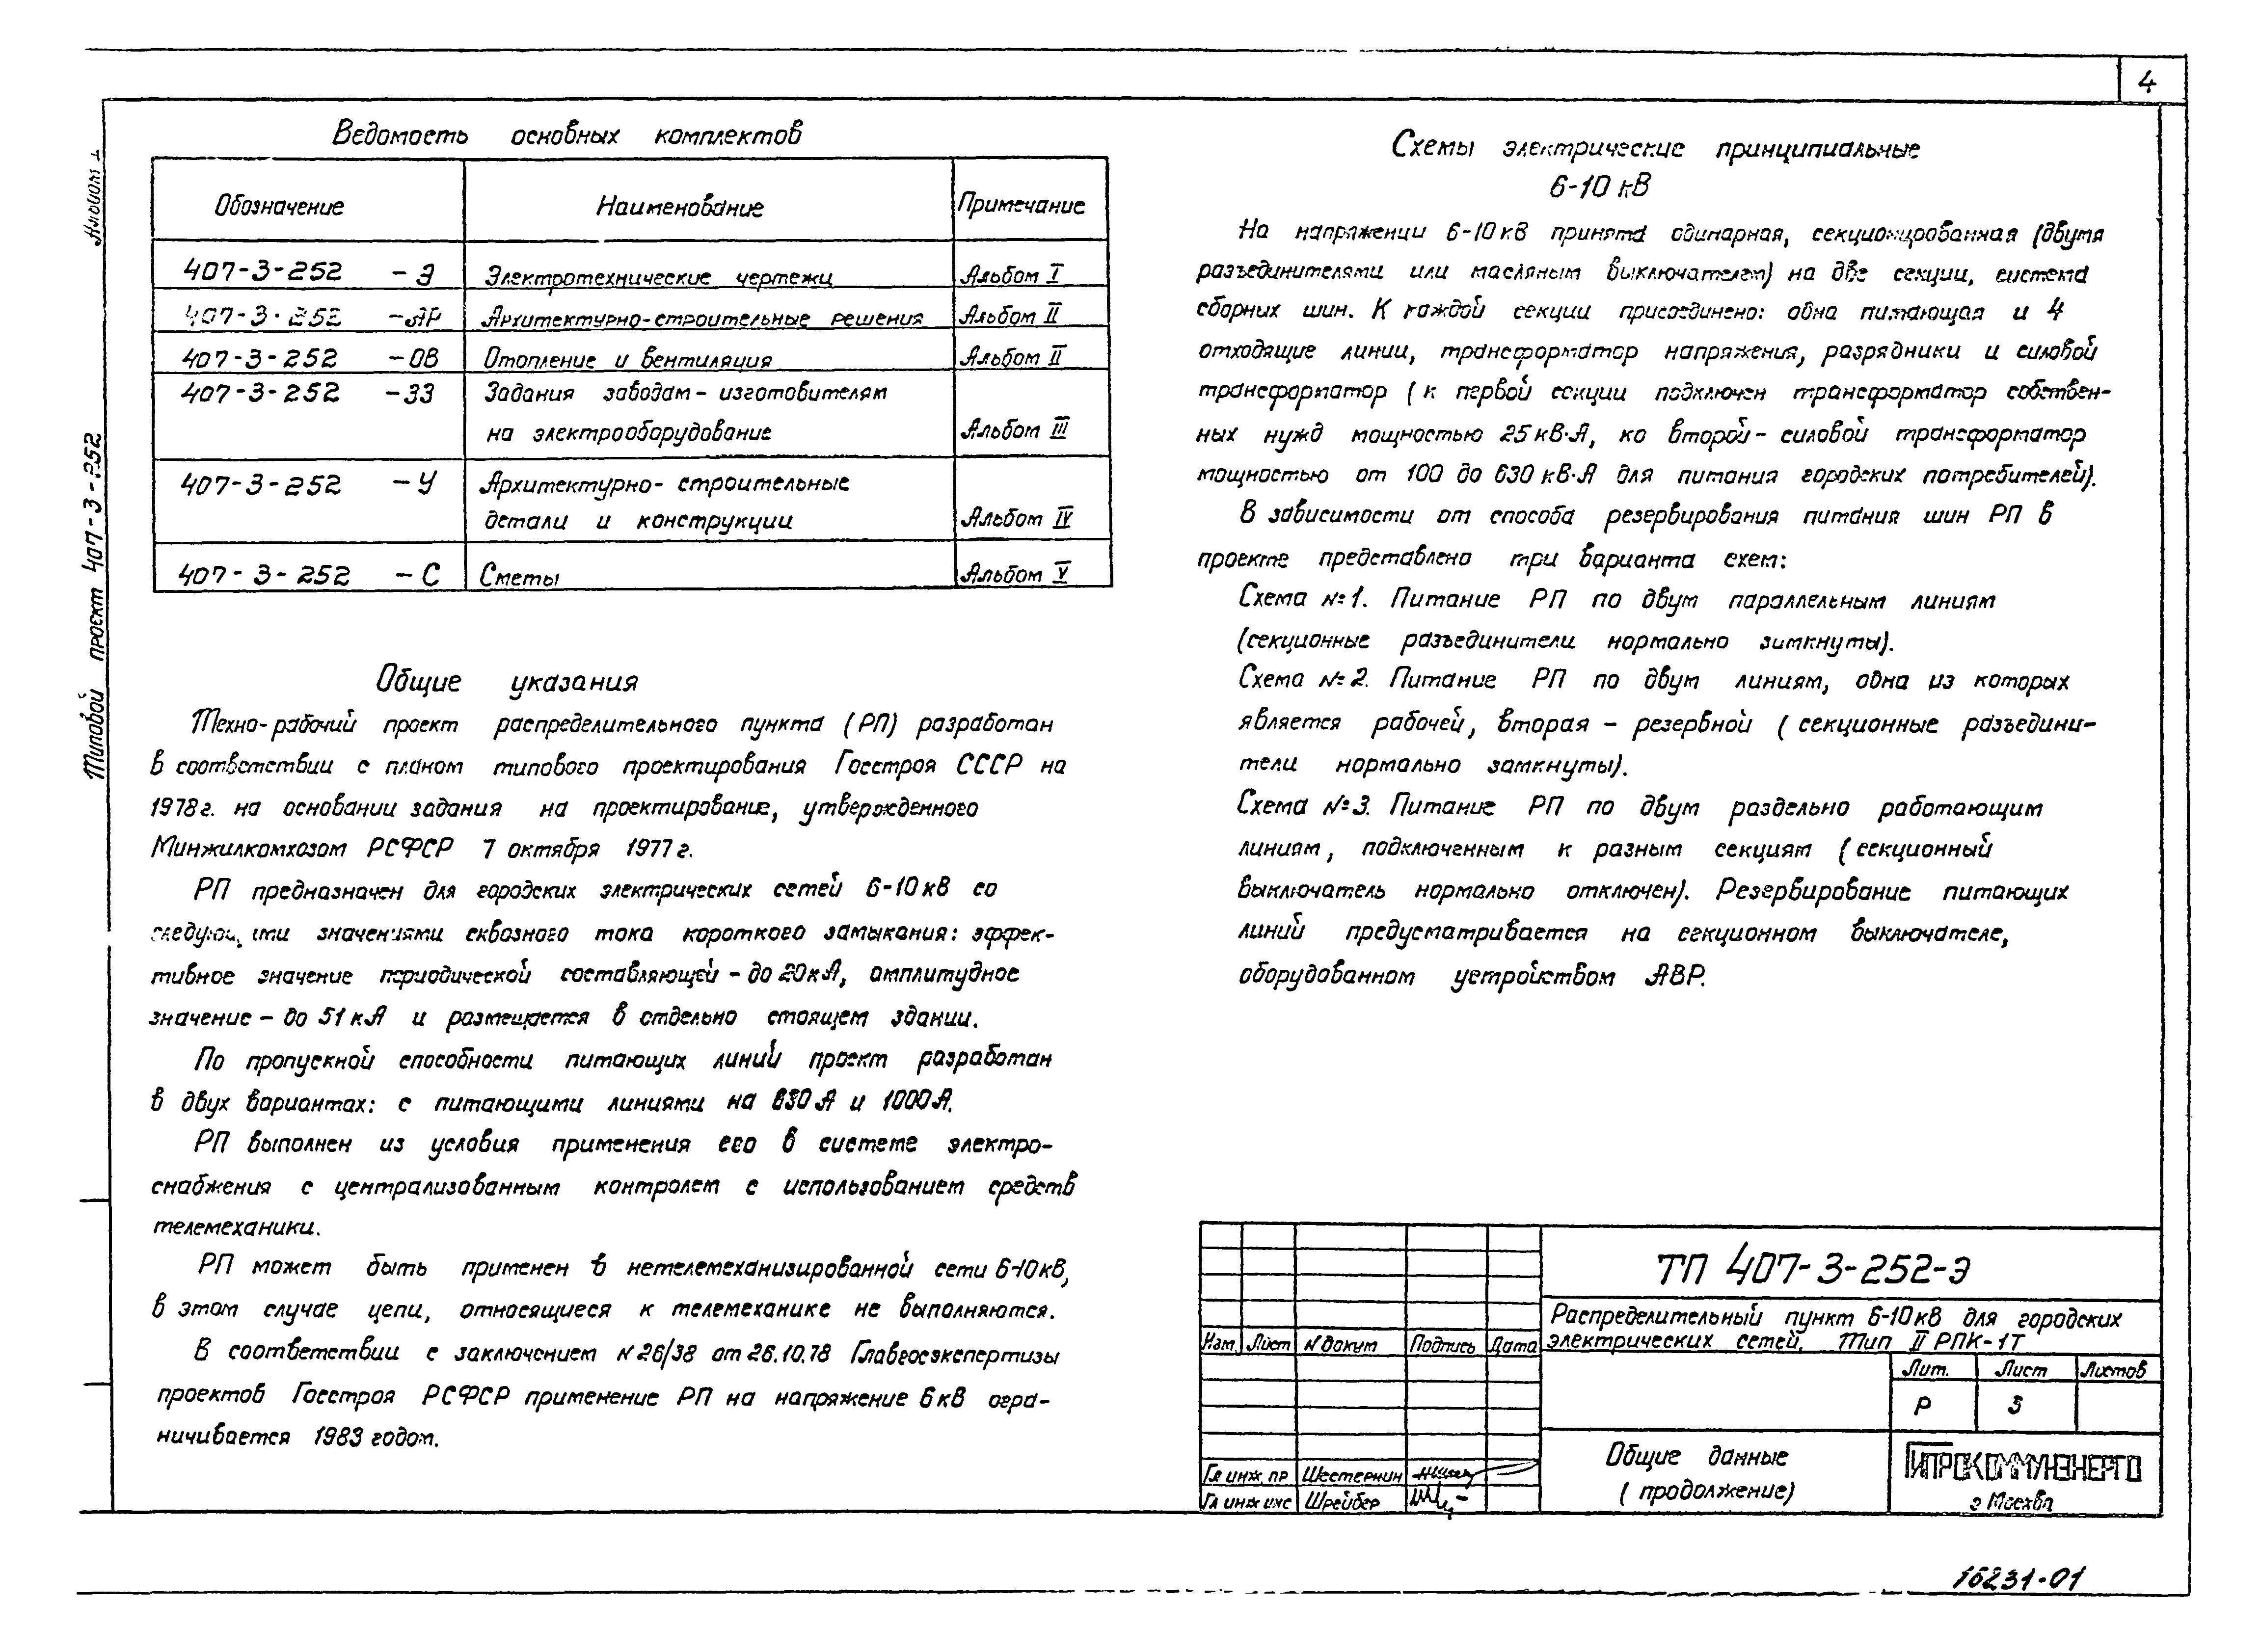 4
Альбом I
Типовой проект 407-3-252
Ведомость основных комплектов
Обозначение Наименование Примечание
407-3-252 -Э Электротехнические чертежи Альбом I
407-3-252 -АР Архитектурно-строительные решения Альбом II
407-3-252 -ОВ Отопление и вентиляция Альбом II
407-3-252 -ЗЗ Задания заводам-изготовителям
на электрооборудование Альбом III
407-3-252 -У Архитектурно-строительные
детали и конструкции Альбом IV
407-3-252 -С Сметы Альбом V
Общие указания
Техно-рабочий проект распределительного пункта (РП) разработан
в соответствии с планом типового проектирования Госстроя СССР на
1978г. на основании задания на проектирование, утвержденного
Минжилкомхозом РСФСР 7 октября 1977г.
РП предназначен для городских электрических сетей 6-10кВ со
следующими значениями сквозного тока короткого замыкания: эффек-
тивное значение периодической составляющей - до 20кА, амплитудное
значение - до 51кА и размещается в отдельно стоящем здании.
По пропускной способности питающих линий проект разработан
в двух вариантах: с питающими линиями на 630А и 1000А.
РП выполнен из условия применения его в системе электро-
снабжения с централизованным контролем с использованием средств
телемеханики.
РП может быть применен в нетелемеханизированной сети 6-10кВ,
в этом случае цепи, относящиеся к телемеханике не выполняются.
В соответствии с заключением N26/38 от 26.10.78 Главгосэкспертизы
проектов Госстроя РСФСР применение РП на напряжение 6кВ огра-
ничивается 1983 годом.
Схемы электрические принципиальные
6-10 кВ
На напряжении 6-10кВ принята одинарная, секционированная (двумя
разъединителями или масляным выключателем) на две секции, система
сборных шин. К каждой секции присоединено: одна питающая и 4
отходящие линии, трансформатор напряжения, разрядники и силовой
трансформатор (к первой секции подключен трансформатор собствен-
ных нужд мощностью 25кВ·А, ко второй - силовой трансформатор
мощностью от 100 до 630 кВ·А для питания городских потребителей).
В зависимости от способа резервирования питания шин РП в
проекте представлено три варианта схем:
Схема №1. Питание РП по двум параллельным линиям
(секционные разъединители нормально замкнуты).
Схема №2. Питание РП по двум линиям, одна из которых
является рабочей, вторая - резервной (секционные разъедини-
тели нормально замкнуты).
Схема №3. Питание РП по двум раздельно работающим
линиям, подключенным к разным секциям (секционный
выключатель нормально отключен). Резервирование питающих
линий предусматривается на секционном выключателе,
оборудованном устройством АВР.
ТП 407-3-252-Э
Распределительный пункт 6-10кВ для городских
электрических сетей. Тип II РПК-1Т
Изм. Лист N докум Подпись Дата
Лит. Лист Листов
Р 3
Общие данные
(продолжение)
ГИПРОКОММУНЭНЕРГО
г Москва
Гл инж. пр Шестернин
Гл инж инс Шрейбер
16231-01